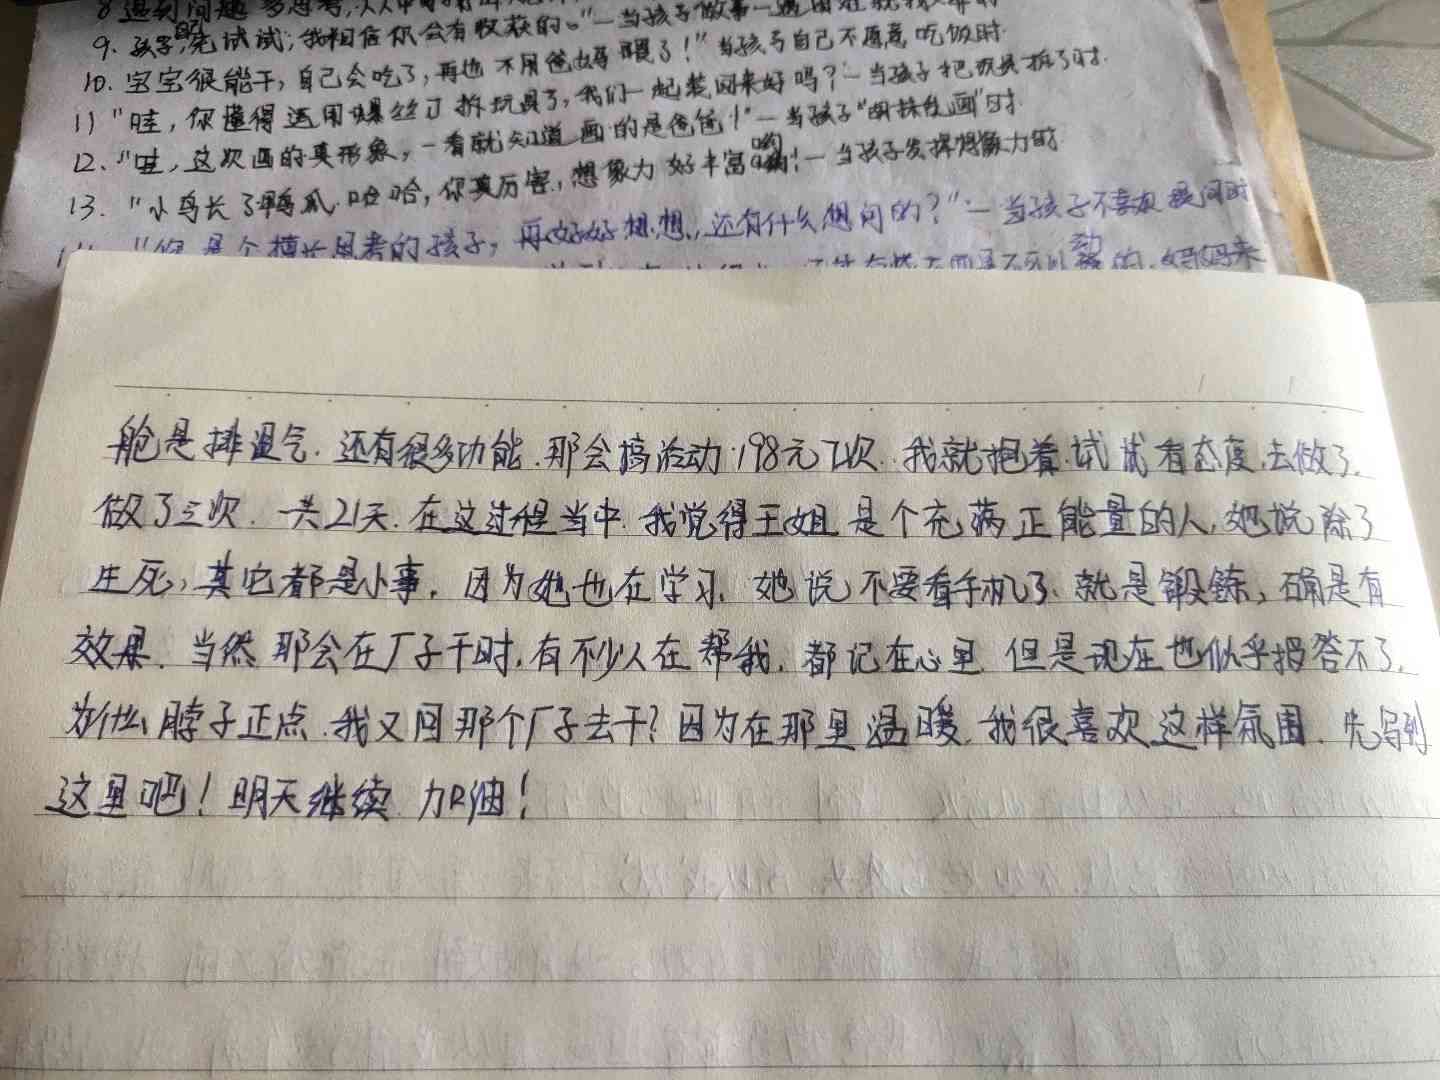 8 遇到问题多思考,
9. 孩子,先试试,我相信你会有收获的。"一当孩子做事一遇困难就
10. 宝宝很能干,自己会吃了,再也不用爸妈喂了!"当孩子自己不愿意吃饭时.
11 "哇,你懂得运用螺丝刀拆玩具了,我们一起装回来好吗?一当孩子把玩具拆了时.
12. "哇,这次画的真形象,一看就知道画的是爸爸!"一当孩子"胡抹乱画"时.
13. "小鸟长了鸭爪.哈哈,你真厉害,想象力好丰富哟!一当孩子发挥想象力时
"你是个擅长思考的孩子,再好好想想,还有什么想问的?"一当孩子不喜欢提问时
舱是排湿气.还有很多功能.那会搞活动.198元7次.我就抱着试试看态度.去做了.
做了三次.一共21天.在这过程当中.我觉得王姐是个充满正能量的人,她说除了
生死,其它都是小事.因为她也在学习.她说不要看手机了.就是锻鍊,确是有
效果.当然那会在厂子干时.有不少人在帮我.都记在心里.但是现在也似乎报答不了.
为什么脖子正点.我又回那个厂子去干?因为在那里温暖.我很喜欢这样氛围.先写到
这里吧!明天继续.加油!